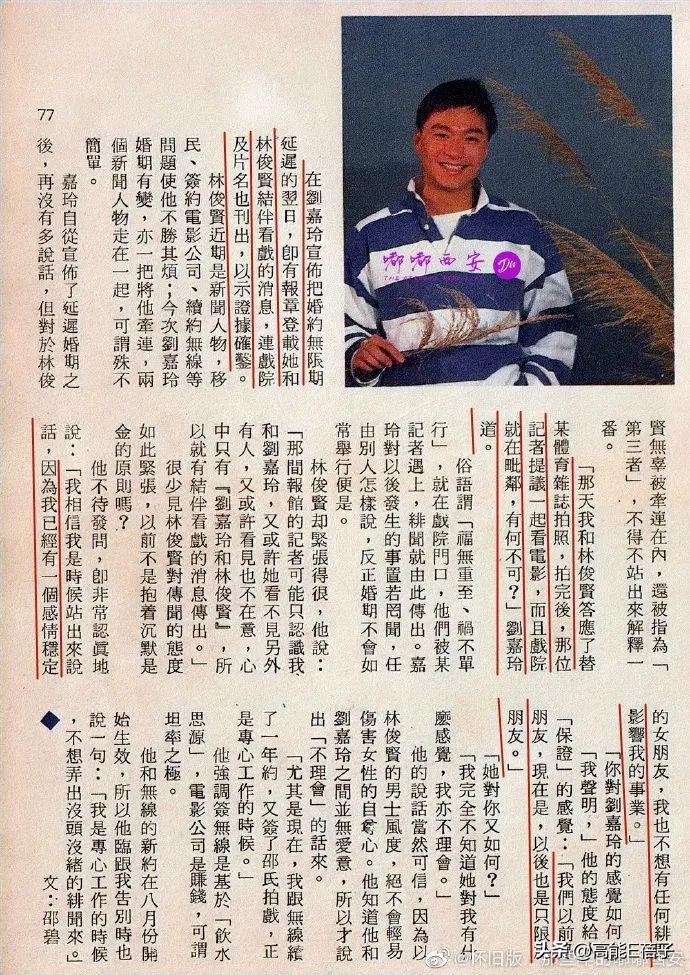 77
在劉嘉玲宣佈把婚約無限期
延遲的翌日，卽有報章登載她和
林俊賢結伴看戲的消息，連戲院
及片名也刊出，以示證據確鑿。
林俊賢近期是新聞人物，移
民、簽約電影公司、續約無線等
問題使他不勝其煩；今次劉嘉玲
婚期有變，亦一把將他牽連，兩
個新聞人物走在一起，可謂殊不
簡單。
嘉玲自從宣佈了延遲婚期之
後，再沒有多說話，但對於林俊
賢無辜被牽連在內，還被指為「
第三者」，不得不站出來解釋一
番。
「那天我和林俊賢答應了替
某體育雜誌拍照，拍完後，那位
記者提議一起看電影，而且戲院
就在毗鄰，有何不可？」劉嘉玲
道。
俗語謂「福無重至、禍不單
行」，就在戲院門口，他們被某
記者遇上，緋聞就由此傳出。嘉
玲對以後發生的事置若罔聞，任
由別人怎樣說，反正婚期不會如
常舉行便是。
林俊賢却緊張得很，他說：
「那間報館的記者可能只認識我
和劉嘉玲，又或許她看不見另外
有人，又或許看見也不在意，心
中只有『劉嘉玲和林俊賢』，所
以就有結伴看戲的消息傳出。」
很少見林俊賢對傳聞的態度
如此緊張，以前不是抱着沉默是
金的原則嗎？
他不待發問，卽非常認眞地
說：「我相信我是時候站出來說
話，因為我已經有一個感情穩定
的女朋友，我也不想有任何緋
影響我的事業。」
「你對劉嘉玲的感覺如何
「我聲明，」他的態度給
「保證」的感覺：「我們以前
朋友，現在是，以後也是只限
朋友。」
「她對你又如何？」
「我完全不知道她對我有什
麼感覺，我亦不理會。」
他的說話當然可信，因為以
林俊賢的男士風度，絕不會輕易
傷害女性的自尊心。他知道他和
劉嘉玲之間並無愛意，所以才說
出「不理會」的話來。
「尤其是現在，我跟無線續
了一年約，又簽了邵氏拍戲，正
是專心工作的時候。」
他強調簽無線是基於「飲水
思源」，電影公司是賺錢，可謂
坦率之極。
他和無線的新約在八月份開
始生效，所以他臨跟我告別時也
說一句：「我是專心工作的時候
，不想弄出沒頭沒緒的緋聞來。」
◆
文：邵碧
嘟嘟西安
Du
頭条 @高能日百子
@怀旧版